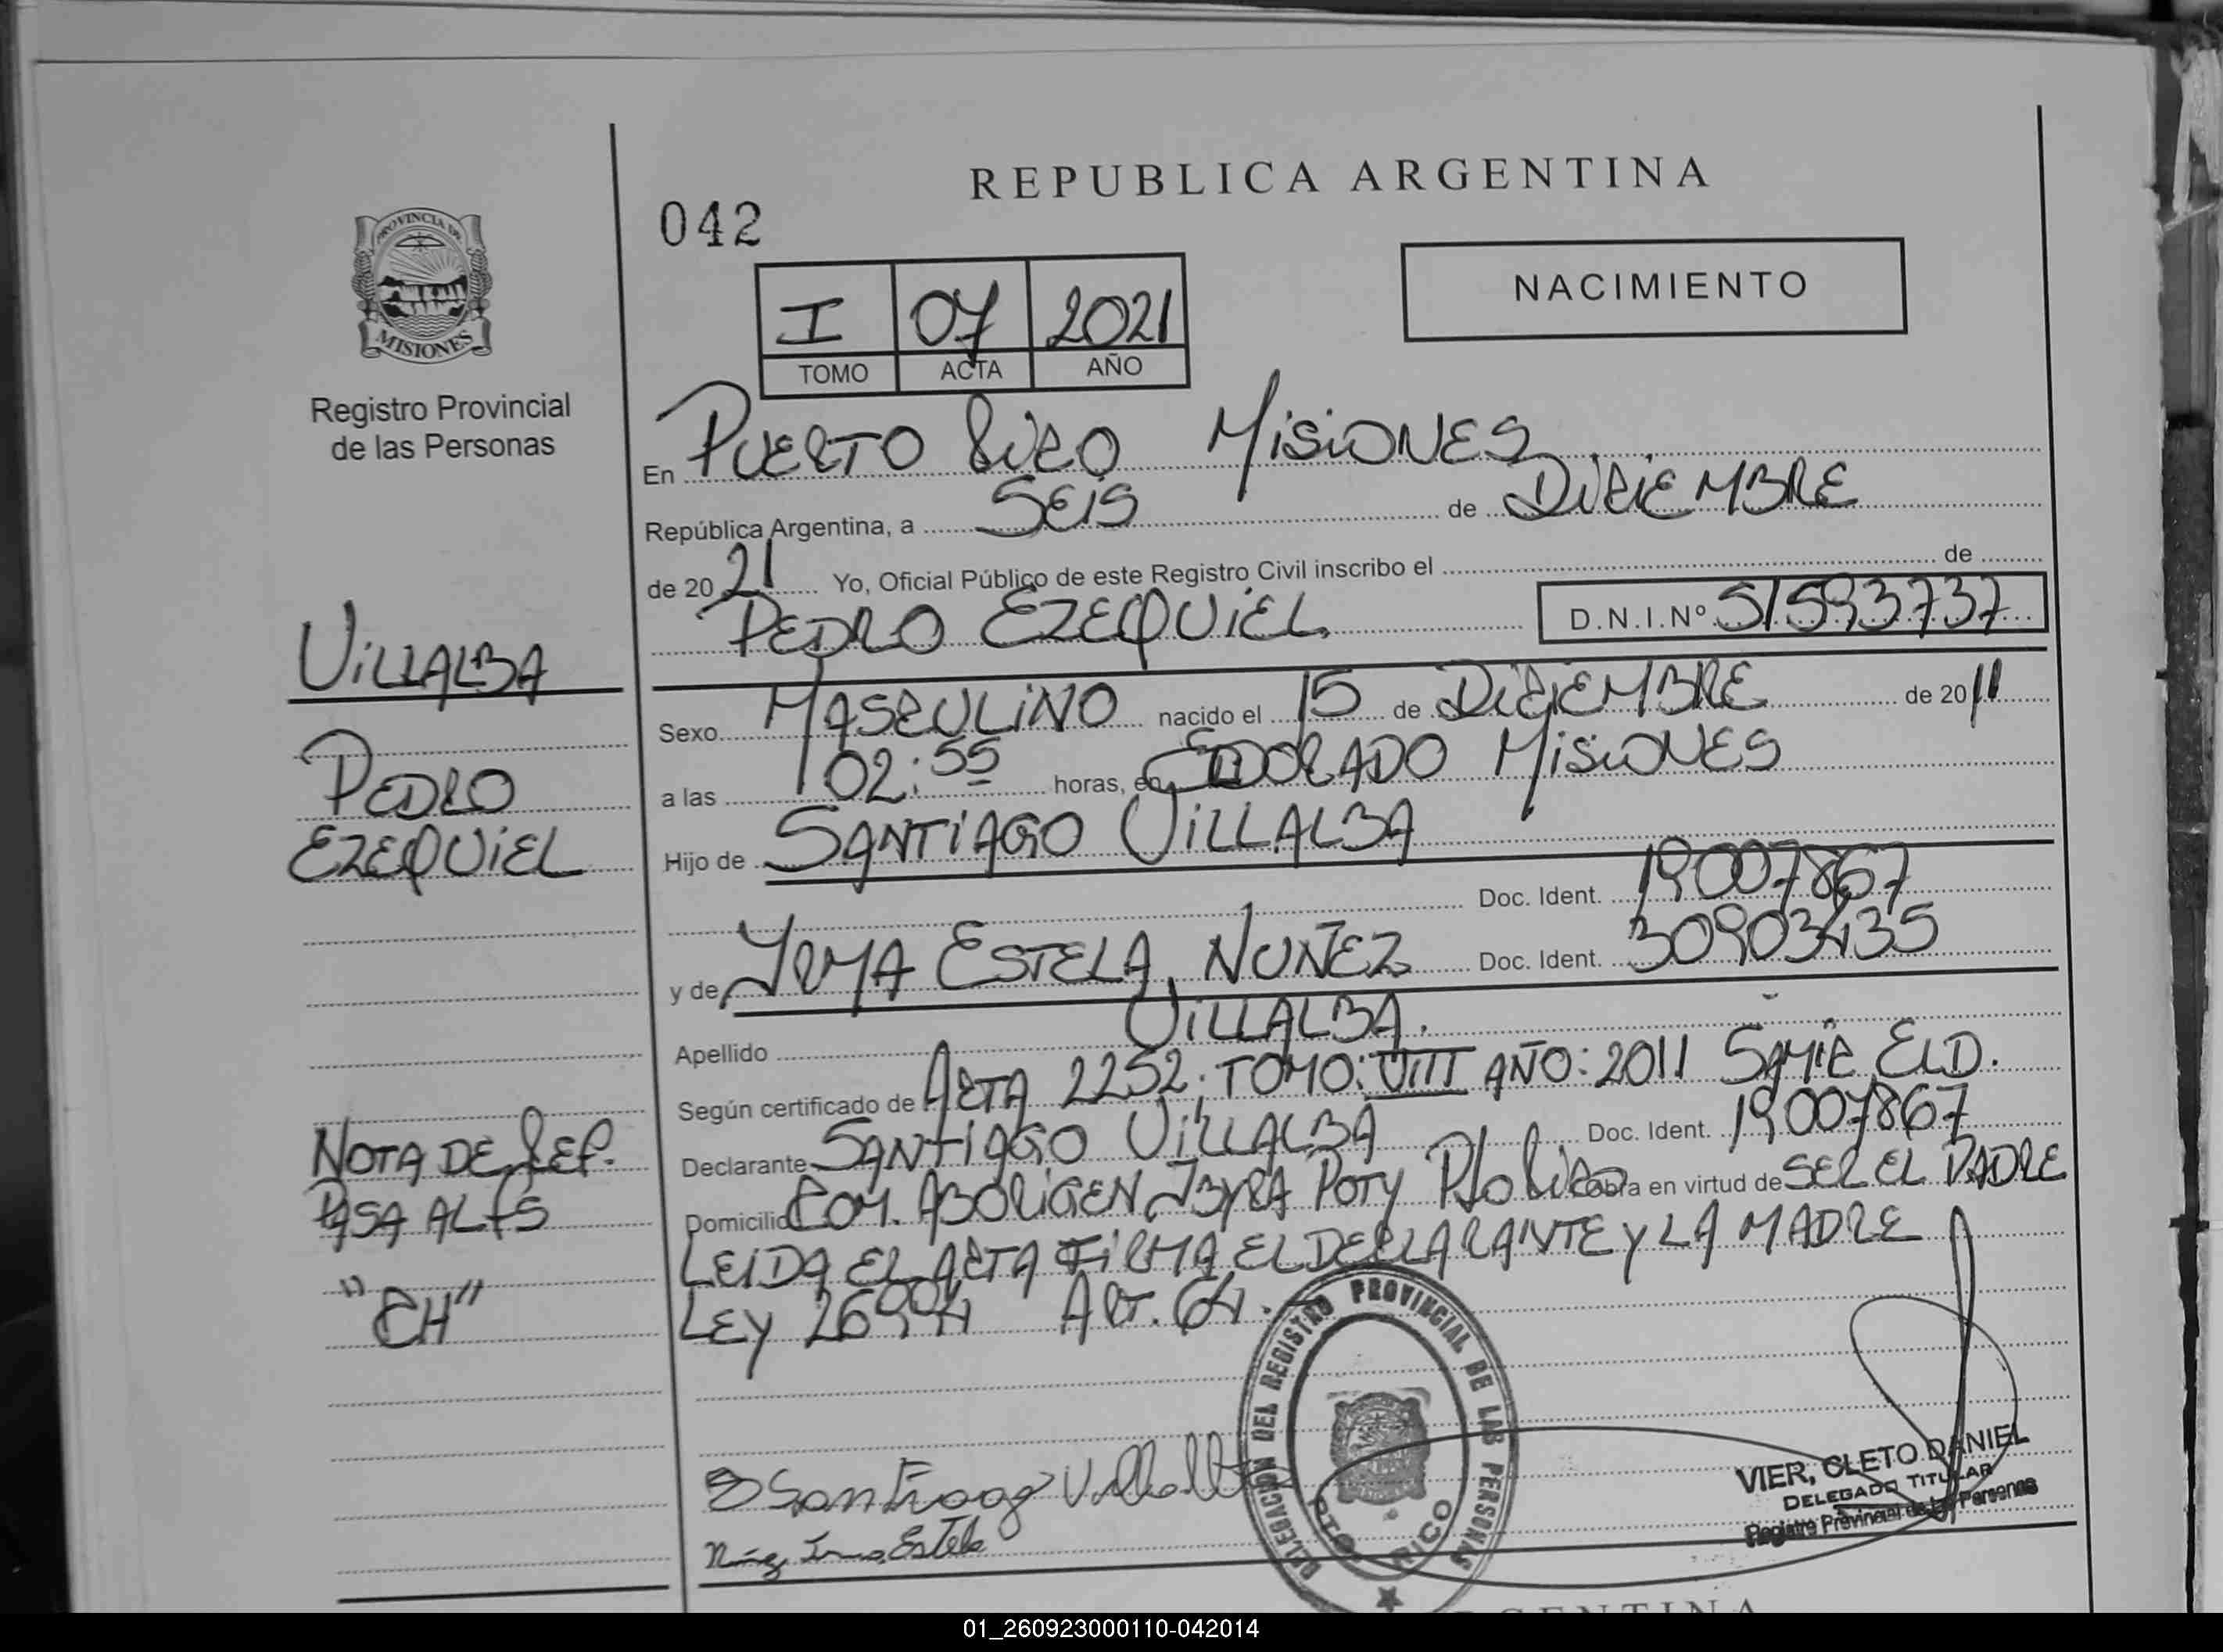 REPUBLICA ARGENTINA
042
NACIMIENTO
I 07 2021
TOMO ACTA AÑO
PROVINCIA DE
MISIONES
Registro Provincial
de las Personas
VILLALBA
PEDRO
EZEQUIEL
NOTA DE REF.
PASA AL FS
"CH"
En PUERTO RICO MISIONES
República Argentina, a SEIS de DICIEMBRE
de 2021 Yo, Oficial Público de este Registro Civil inscribo el de
PEDRO EZEQUIEL D.N.I.Nº 51593737
Sexo MASCULINO nacido el 15 de DICIEMBRE de 2011
a las 02:55 horas, en ELDORADO MISIONES
Hijo de SANTIAGO VILLALBA
Doc. Ident. 19007867
y de IRMA ESTELA NUÑEZ Doc. Ident. 30903435
Apellido VILLALBA.
Según certificado de ACTA 2252. TOMO: VIII AÑO: 2011 SAMIC ELD.
Declarante SANTIAGO VILLALBA Doc. Ident. 19007867
Domicilio COM. ABORIGEN IBYRA POTY Pto Rico obra en virtud de SER EL PADRE
LEIDA EL ACTA FIRMA EL DECLARANTE Y LA MADRE
LEY 26994 ART. 64.
Santiago Villalba
Irma Estela
DELEGACION DEL REGISTRO PROVINCIAL DE LAS PERSONAS
PTO. RICO
VIER, CLETO DANIEL
DELEGADO TITULAR
Registro Provincial de las Personas
01_260923000110-042014